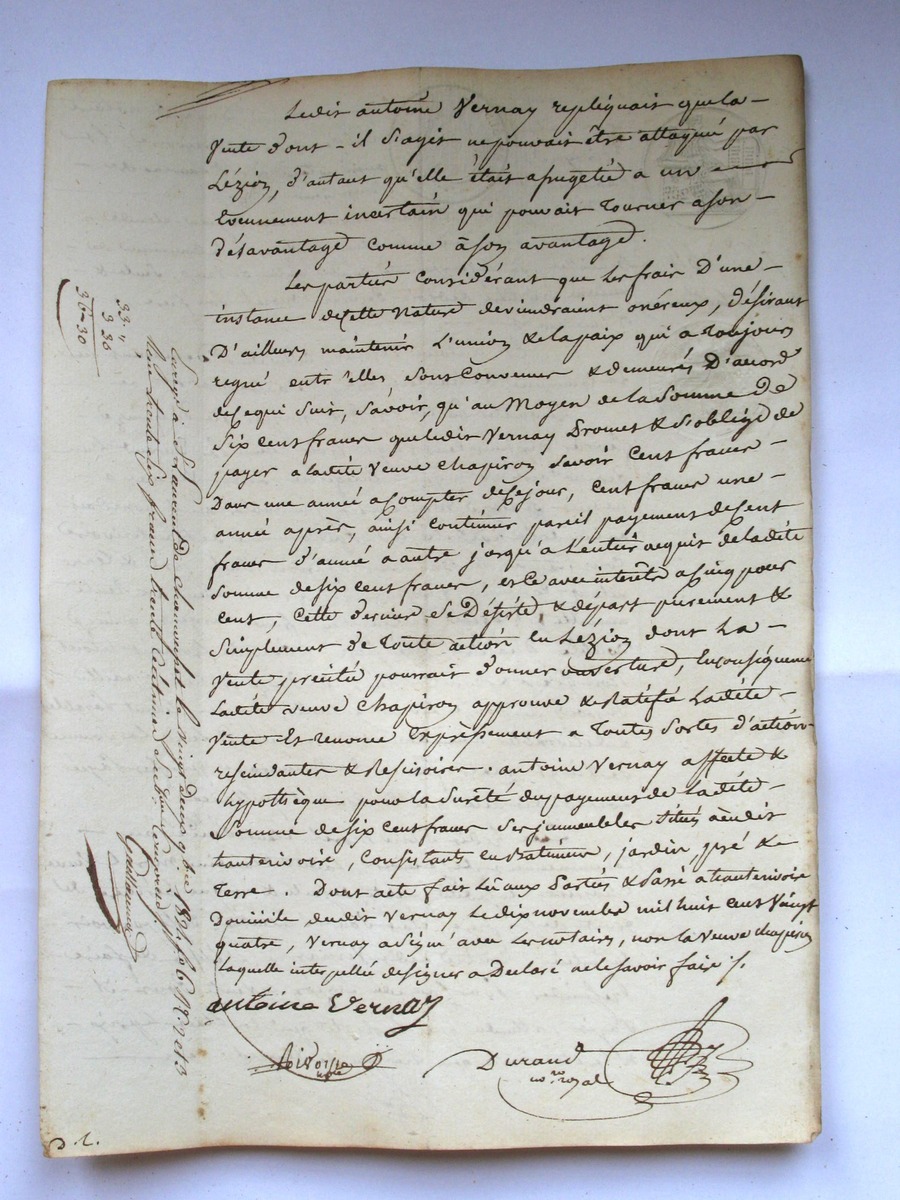 Ledit antoine Vernay repliquait que la -
Vente dont - il s'agit ne pouvait être attaquée par
Lézion, d'autant qu'elle était assugetie a un
Evennement incertain qui pouvait Tourner a son -
désavantage comme à son avantage.
Les parties Considérant que les frais D'une -
instance de cette Nature deviendraint onéreux, désirant
D'ailleurs maintenir L'union & la paix qui a Toujours
regné entr'elles, sont Convenues & demeurés D'accord
de ce qui suit, savoir, qu'au Moyen de la Somme de
Six cent francs que ledit Vernay Promet & s'oblige de
payer a ladite Veuve Chapiron savoir Cent francs -
Dans une année a compter de ce jour, Cent francs une -
année après, ainsi continuer pareil payement de cent
francs d'année a autre jusqu'a l'entier acquit de ladite
Somme de six cent francs, et ce avec interêts a Cinq pour
cent, Cette derniere se Désiste & départ purement &
Simplement de Toute action en Lézion dont la -
Vente precitée pourrait donner ouverture, En consequence
Ladite veuve Chapiron approuve & ratifie Ladite -
Vente Et renonce Expressement a Toutes Sortes d'actions
rescindantes & Rescisoires. antoine Vernay affecte &
hypothèque pour la Sureté du payement de Ladite -
Somme de six cent francs ses immeubles situés audit
hauterivoire, Consistants en Batiments, jardin, pré &
Terre. Dont acte fait Lu aux Parties & Passé a hauterivoire
Domicile dudit Vernay Le dix novembre mil huit cent Vingt
quatre, Vernay a Signé avec Les notaires, non la Veuve Chapiron
Laquelle interpellée de signer a Declaré ne le savoir faire /.
antoine Vernay
Durand
no.re royal
33. "
3 30
36 - 30
Enregé à St Laurent de Chamousset le vingt deux 9bre 1824 fo 6 Ro. 7 et 3
Recu trente six francs trente centimes
D. L.